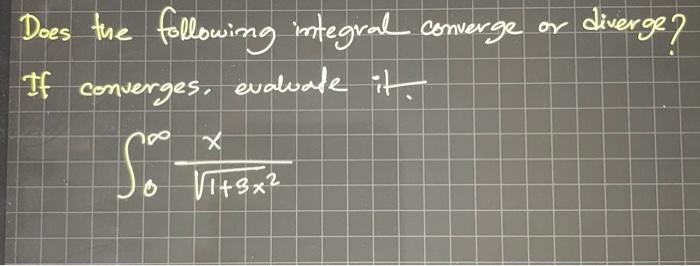 Does the following integral converge or diverge?
If converges, evaluate it.
∫₀^∞ x/√(1+8x²)